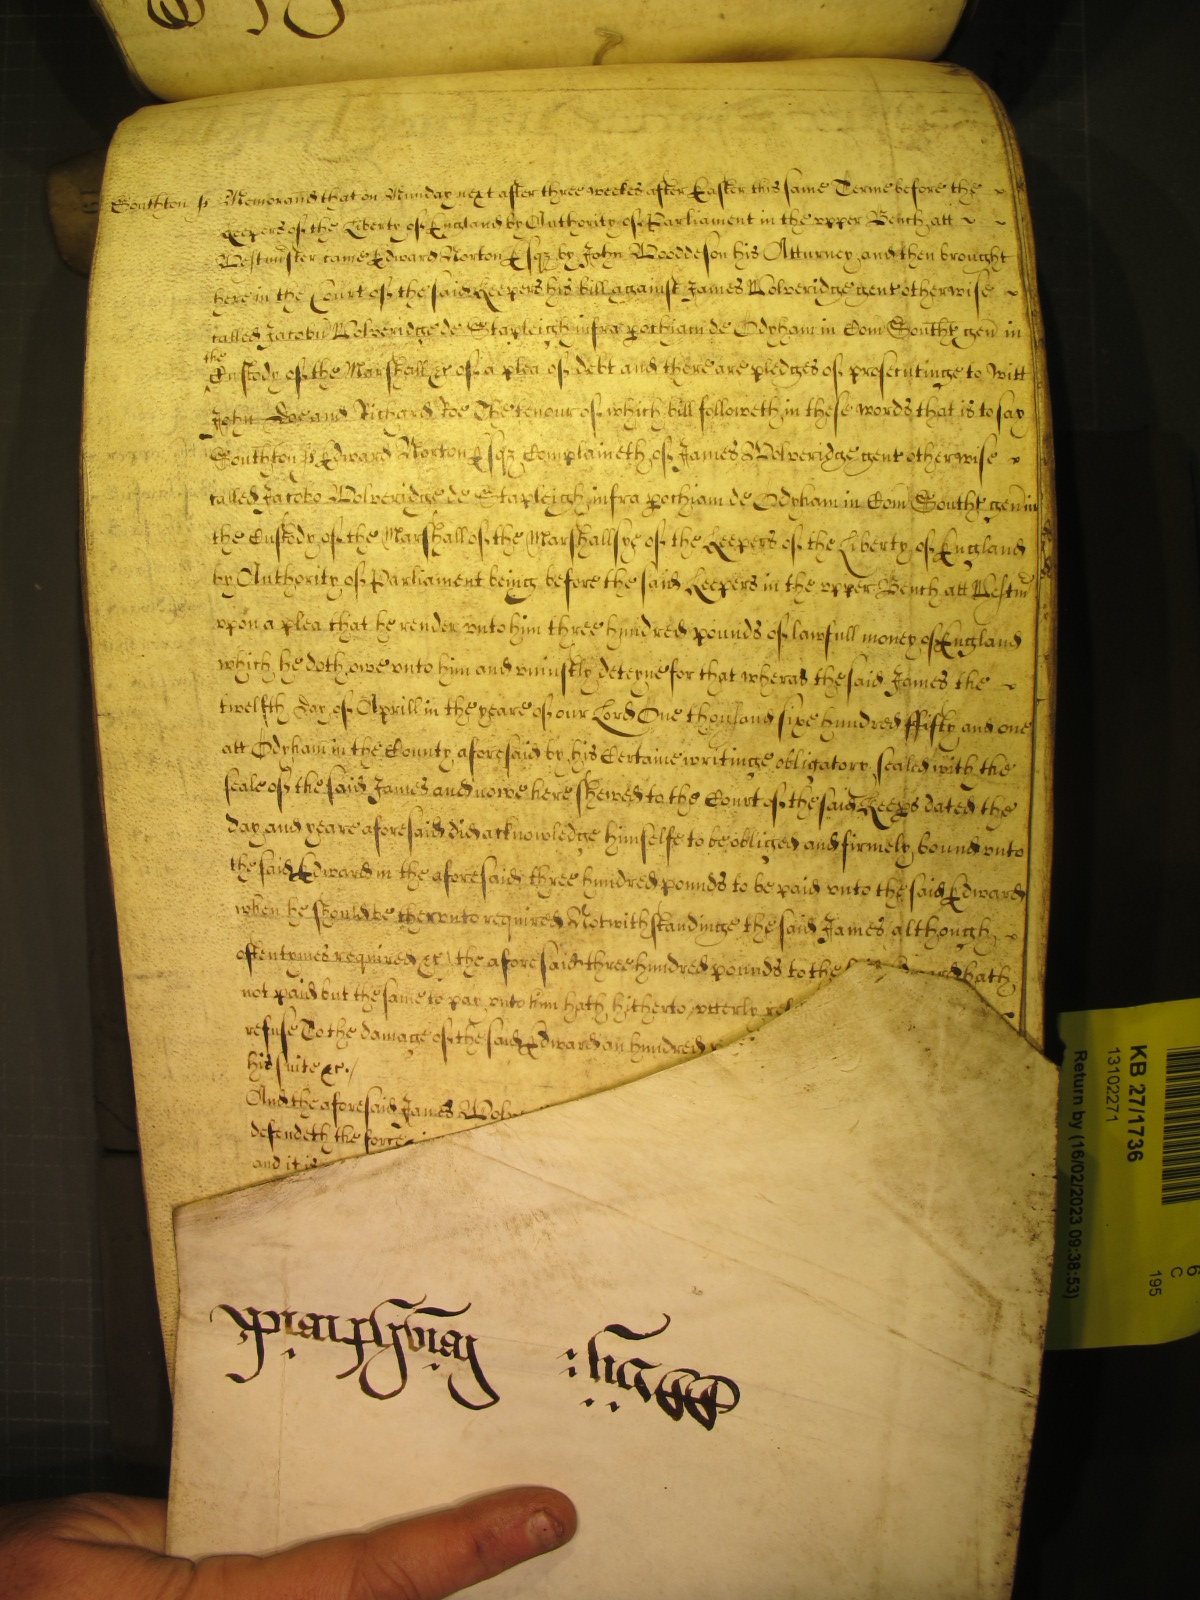 Southton ss Memorand that on Munday next after three weekes after Easter this same Terme before the
Keepers of the Liberty of England by Authority of Parliament in the upper Bench att
Westminster came Edward Norton Esqz by John Wooddeson his Atturney and then brought
here in the Court of the said Keepers his bill against James Wolveridge gent otherwise
called Jacobu Wolveridge de Stapleigh infra pochiam de Odyham in Com Southt gen in
the
Custody of the Marshall &c of a plea of debt and there are pledges of prosecutinge to witt
John Doe and Richard Roe The tenour of which bill followeth in these words that is to say
Southton ss Edward Norton Esqz Complaineth of James Wolveridge gent otherwise
called Jacobo Wolveridge de Stapleigh infra pochiam de Odyham in Com Southt gen in
the Custody of the Marshall of the Marshallsye of the Keepers of the Liberty of England
by Authority of Parliament being before the said Keepers in the upper Bench att Westm
upon a plea that he render unto him three hundred pounds of lawfull money of England
which he doth owe unto him and uniustly deteyne for that wheras the said James the
twelfth day of Aprill in the yeare of our Lord One thousand sixe hundred ffifty and one
att Odyham in the County aforesaid by his Certaine writinge obligatory sealed with the
seale of the said James and nowe here shewed to the Court of the said Keeps dated the
day and yeare aforesaid did acknowledge himselfe to be obliged and firmely bound unto
the said Edward in the aforesaid three hundred pounds to be paid unto the said Edward
when he should be therunto required Notwithstandinge the said James although
oftentymes required &c the aforesaid three hundred pounds to the hath
not paid but the same to pay unto him hath hitherto utterly
refuse To the damage of the said Edward an hundred
his suite &c
And the aforesaid James
defendeth the force
and it is
KB 27/1736
13102271
Return by (16/02/2023 09:38:53)
6
C
195